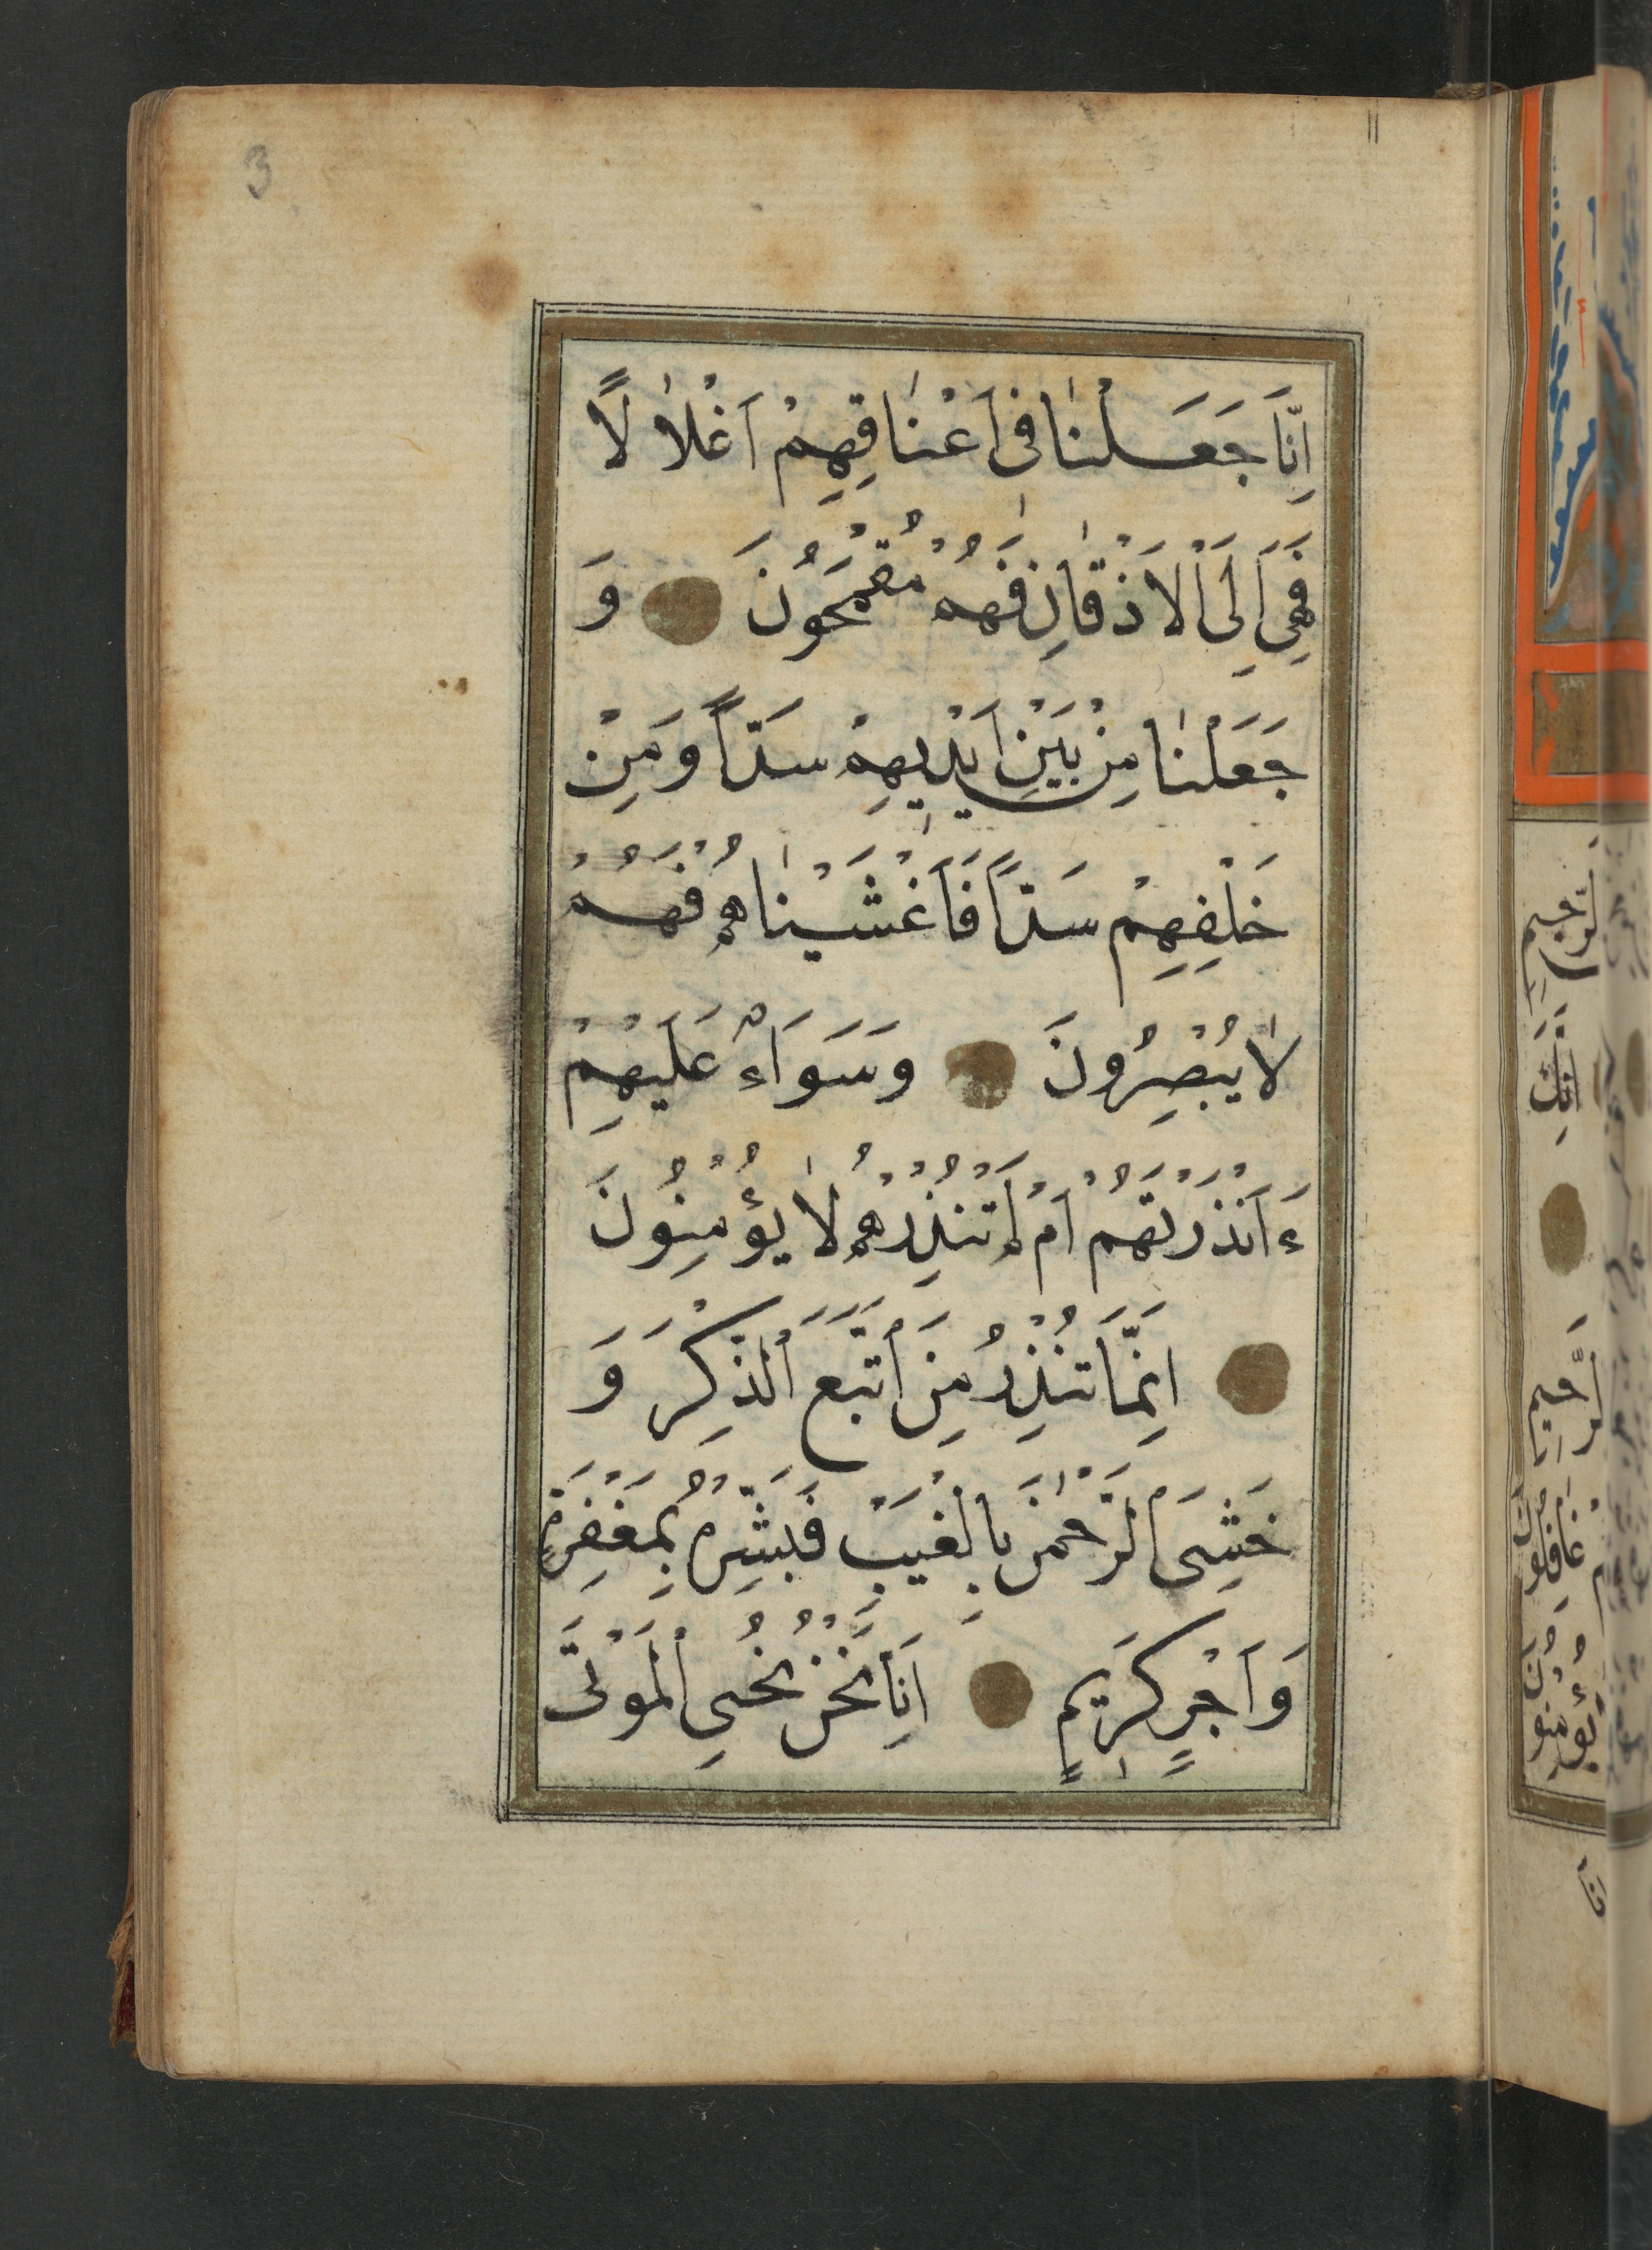 3
اِنَّا جَعَلْنٰا فى اَعْنٰاقِهِمْ اَغْلٰالًا
فَهِىَ اِلَى الْاَذْقٰانِ فَهُمْ مُقْمَحُونَ وَ
جَعَلْنٰا مِنْ بَيْنِ اَيْديهِمْ سَدّاً وَمِنْ
خَلْفِهِمْ سَدّاً فَاَغْشَيْنٰاهُمْ فَهُمْ
لٰا يُبْصِرُونَ وَسَوَاءٌ عَلَيْهِمْ
ءَاَنْذَرْتَهُمْ اَمْ لَمْ تُنْذِرْهُمْ لٰا يُؤْمِنُونَ
اِنَّمَا تُنْذِرُ مَنِ اتَّبَعَ الذِّكْرَ وَ
خَشِىَ الرَّحْمٰنَ بِالْغَيْبِ فَبَشِّرْهُ بِمَغْفِرَةٍ
وَاَجْرٍ كَرِيمٍ اِنَّا نَحْنُ نُحْىِ الْمَوْتَى
لرَّحيمِ
اِنَّكَ
لرَّحيمِ
غٰافِلُونَ
يُؤْمِنُونَ
اِنَّا